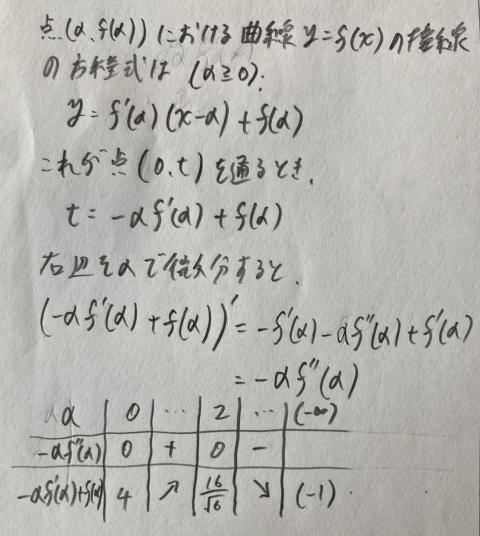 点(α, f(α))における曲線 y=f(x)の接線
の方程式は (α≧0);
y=f'(α)(x-α)+f(α)
これが点(0,t)を通るとき,
t=-αf'(α)+f(α)
右辺をαで微分すると,
(-αf'(α)+f(α))'=-f'(α)-αf''(α)+f'(α)
=-αf''(α)
α 0 … 2 … (-∞)
-αf''(α) 0 + 0 -
-αf'(α)+f(α) 4 ↗ 16/√6 ↘ (-1)